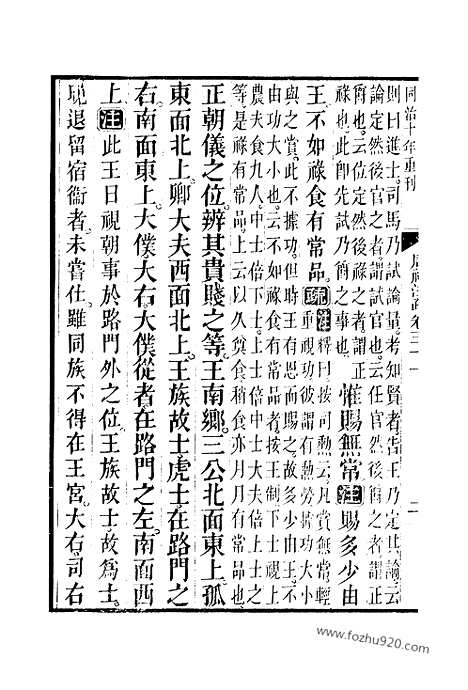 同治十年重刊 周禮注疏卷三十一 二
則曰進士司馬乃試論量考知賢者告王乃定其論云
論定然後官之者謂試官也云任官然後爵之者謂正
爵也云位定然後祿之者謂正
祿也此即先試乃爵之事也
惟賜無常注賜多少由
王不如祿食有常品疏注釋曰按司勲云凡賞無常輕
重視功彼謂有勲勞據功大小
與之賞此不據功但時王有恩而賜之故多少由王不
由功大小也云不如祿食有常品者按王制下士視上
農夫食九人中士倍下士上士倍中士大夫倍上士之
等是祿有常品上云以久奠食稍食亦月月有常品也
正朝儀之位辨其貴賤之等王南鄉三公北面東上孤
東面北上卿大夫西面北上王族故士虎士在路門之
右南面東上大僕大右大僕從者在路門之左南面西
上注此王日視朝事於路門外之位王族故士故爲士
晚退留宿衞者未嘗仕雖同族不得在王宮大右司右
www.fozhu920.com